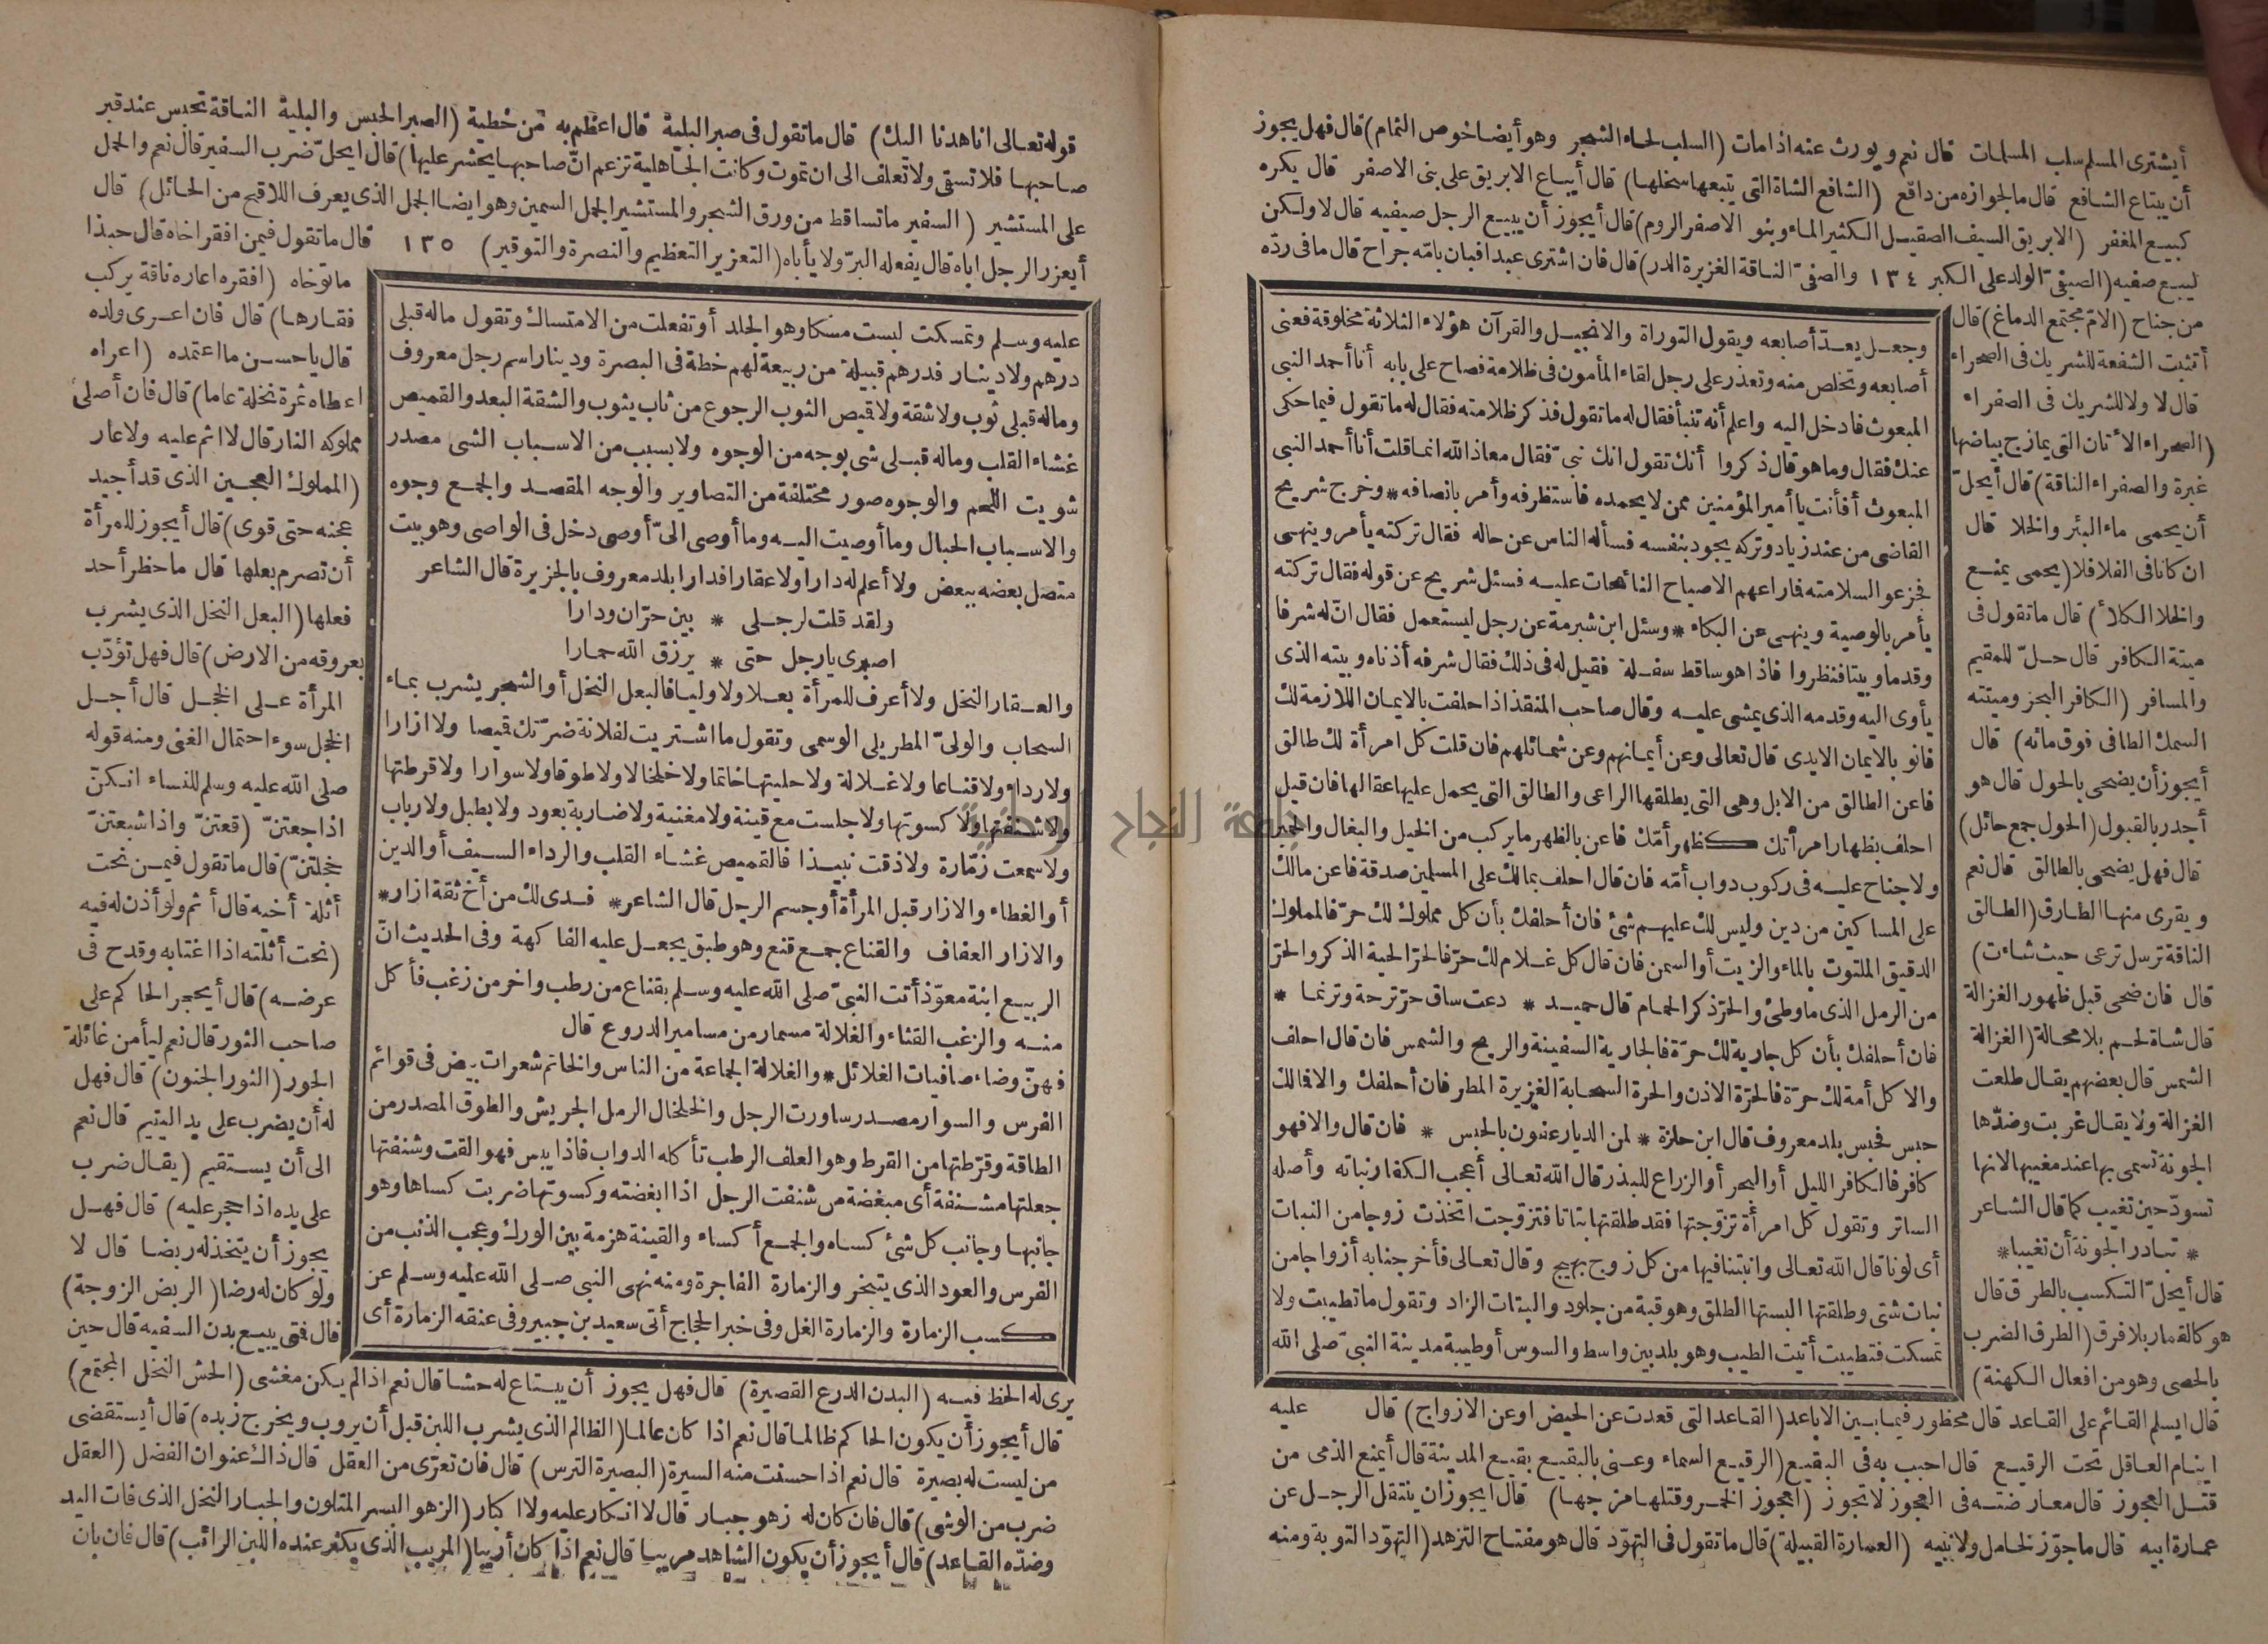 أيشترى المسلم سلب المسلمات قال نعم ويورث عنه اذا مات (السلب لحاء الشجر وهو أيضا خوص الثمام) قال فهل يجوز
أن يبتاع الشافع قال ما لجوازه من دافع (الشافع الشاة التى يتبعها سخلها) قال أيباع الابريق على بنى الاصفر قال يكره
كبيع المغفر (الابريق السيف الصقيل الكثير الماء وبنو الاصفر الروم) قال أيجوز أن يبيع الرجل صيفيه قال لا ولكن
ليبع صفيه (الصيفىّ الولد على الكبر ١٣٤ والصفىّ الناقة الغزيرة الدر) قال فان اشترى عبدا فبان بامّه جراح قال ما فى ردّه
من جناح (الامّ مجتمع الدماغ) قال
أتثبت الشفعة للشريك فى الصحراء
قال لا ولا للشريك فى الصفراء
(الصحراء الأتان التى يمازج بياضها
غبرة والصفراء الناقة) قال أيحلّ
أن يحمى ماء البئر والخلا قال
ان كانا فى الفلا فلا (يحمى يمنع
والخلا الكلأ) قال ما تقول فى
ميتة الكافر قال حلّ للمقيم
والمسافر (الكافر البحر وميتته
السمك الطافى فوق مائه) قال
أيجوز أن يضحى بالحول قال هو
أجدر بالقبول (الحول جمع حائل)
قال فهل يضحى بالطالق قال نعم
ويقرى منها الطارق (الطالق
الناقة ترسل ترعى حيث شاءت)
قال فان ضحى قبل ظهور الغزالة
قال شاة لحم بلا محالة (الغزالة
الشمس قال بعضهم يقال طلعت
الغزالة ولا يقال غربت وضدّها
الجونة تسمى بها عند مغيبها لانها
تسودّ حين تغيب كما قال الشاعر
* تبادر الجونة أن تغيبا *
قال أيحلّ التكسب بالطرق قال
هو كالقمار بلا فرق (الطرق الضرب
بالحصى وهو من افعال الكهنة)
وجعل يعدّ أصابعه ويقول التوراة والانجيل والقرآن هؤلاء الثلاثة مخلوقة فعنى
أصابعه وتخلص منه وتعذر على رجل لقاء المأمون فى ظلامة فصاح على بابه أنا أحمد النبى
المبعوث فادخل اليه واعلم أنه تنبأ فقال له ما تقول فذكر ظلامته فقال له ما تقول فيما حكى
عنك فقال وما هو قال ذكروا أنك تقول انك نبىّ فقال معاذ الله انما قلت أنا أحمد النبى
المبعوث أفأنت يا أمير المؤمنين ممن لا يحمده فاستظرفه وأمر بانصافه * وخرج شريح
القاضى من عند زياد وتركه يجود بنفسه فسأله الناس عن حاله فقال تركته يأمر وينهى
فجزعوا لسلامته فاراعهم الا صياح النائحات عليه فسئل شريح عن قوله فقال تركته
يأمر بالوصية وينهى عن البكاء * وسئل ابن شبرمة عن رجل ليستعمل فقال انّ له شرفا
وقدما وبيتا فنظروا فاذا هو ساقط سفلة فقيل له فى ذلك فقال شرفه أذناه وبيته الذى
يأوى اليه وقدمه الذى يمشى عليه وقال صاحب المنقذ اذا حلفت بالايمان اللازمة لك
فانو بالايمان الايدى قال تعالى وعن أيمانهم وعن شمائلهم فان قلت كل امرأة لك طالق
فاعن الطالق من الابل وهى التى يطلقها الراعى والطالق التى يحمل عليها عقالها فان قيل
احلف بظهار امرأتك كظهر أمّك فاعن بالظهر ما يركب من الخيل والبغال والحمير
ولا جناح عليه فى ركوب دواب أمّه فان قال احلف بمالك على المسلمين صدقة فاعن مالك
على المساكين من دين وليس لك عليهم شئ فان أحلفك بأن كل مملوك لك حرّ فالمملوك
الدقيق الملتوت بالماء والزيت أو السمن فان قال كل غلام لك حرّ فالحرّ الحية الذكر والحرّ
من الرمل الذى ما وطئ والحرّ ذكر الحمام قال حميد * دعت ساق حرّ ترحة وترنما *
فان أحلفك بأن كل جارية لك حرّة فالجارية السفينة والريح والشمس فان قال احلف
والا كل أمة لك حرّة فالحرّة الاذن والحرة السحابة الغزيرة المطر فان أحلفك والا فمالك
حبس فحبس بلد معروف قال ابن حلزة * لمن الديار عنون بالحبس * فان قال والا فهو
كافر فالكافر الليل أو البحر أو الزراع للبذر قال الله تعالى أعجب الكفار نباته وأصله
الساتر وتقول كل امرأة تزوّجتها فقد طلقتها بتاتا فتزوّجت اتخذت زوجا من النبات
أى لونا قال الله تعالى وانبتنا فيها من كل زوج بهيج وقال تعالى فأخرجنا به أزواجا من
نبات شتى وطلقتها البستها الطلق وهو قبة من جلود والبتات الزاد وتقول ما تطيبت ولا
تمسكت فتطيبت أتيت الطيب وهو بلد بين واسط والسوس أو طيبة مدينة النبىّ صلى الله
قال ايسلم القائم على القاعد قال محظور فيما بين الاباعد (القاعد التى قعدت عن الحيض او عن الازواج) قال عليه
اينام العاقل تحت الرقيع قال احبب به فى البقيع (الرقيع السماء وعنى بالبقيع بقيع المدينة) قال أيمنع الذمى من
قتل العجوز قال معارضته فى العجوز لا تجوز (العجوز الخمر وقتلها مزجها) قال ايجوز ان ينتقل الرجل عن
عمارة ابيه قال ما جوّز لخامل ولا نبيه (العمارة القبيلة) قال ما تقول فى التهوّد قال هو مفتاح التزهد (التهوّد التوبة ومنه
قوله تعالى انا هدنا اليك) قال ما تقول فى صبر البلية قال اعظم به من خطية (الصبر الحبس والبلية الناقة تحبس عند قبر
صاحبها فلا تسقى ولا تعلف الى ان تموت وكانت الجاهلية تزعم انّ صاحبها يحشر عليها) قال ايحلّ ضرب السفير قال نعم والحمل
على المستشير (السفير ما تساقط من ورق الشجر والمستشير الجمل السمين وهو ايضا الجمل الذى يعرف اللاقح من الحائل) قال
أيعزر الرجل اباه قال يفعله البرّ ولا يأباه (التعزير التعظيم والنصرة والتوقير) ١٣٥ قال ما تقول فيمن افقر اخاه قال حبذا
ما توخاه (افقره اعاره ناقة يركب
فقارها) قال فان اعرى ولده
قال يا حسن ما اعتمده (اعراه
اعطاه ثمرة نخلة عاما) قال فان أصلى
مملوكه النار قال لا اثم عليه ولا عار
(المملوك العجين الذى قد أجيد
عجنه حتى قوى) قال أيجوز للمرأة
أن تصرم بعلها قال ما حظر أحد
فعلها (البعل النخل الذى يشرب
بعروقه من الارض) قال فهل تؤدّب
المرأة على الخجل قال أجل
الخجل سوء احتمال الغنى ومنه قوله
صلى الله عليه وسلم للنساء انكنّ
اذا جعتنّ (قعتنّ واذا شبعتنّ
خجلتنّ) قال ما تقول فيمن نحت
أثلة أخيه قال أثم ولو أذن له فيه
(نحت أثلته اذا اغتابه وقدح فى
عرضه) قال أيحجر الحاكم على
صاحب الثور قال نعم ليأمن غائلة
الجور (الثور الجنون) قال فهل
له أن يضرب على يد اليتيم قال نعم
الى أن يستقيم (يقال ضرب
على يده اذا حجر عليه) قال فهل
يجوز أن يتخذ له ربضا قال لا
ولو كان له رضا (الربض الزوجة)
قال فتى يبيع بدن السفيه قال حين
عليه وسلم وتمسكت لبست مسكا وهو الجلد أو تفعلت من الامتساك وتقول ماله قبلى
درهم ولا دينار فدرهم قبيلة من ربيعة لهم خطة فى البصرة ودينار اسم رجل معروف
وماله قبلى ثوب ولا شقة ولا قميص الثوب الرجوع من ثاب يثوب والشقة البعد والقميص
غشاء القلب وماله قبلى شى بوجه من الوجوه ولا بسبب من الاسباب الشى مصدر
شويت اللحم والوجوه صور مختلفة من التصاوير والوجه المقصد والجمع وجوه
والاسباب الحبال وما أوصيت اليه وما أوصى الىّ أوصى دخل فى الواصى وهو بيت
متصل بعضه ببعض ولا أعلم له دارا ولا عقارا فدارا بلد معروف بالجزيرة قال الشاعر
ولقد قلت لرجلى * بين حرّان ودارا
اصبرى يا رجل حتى * يرزق الله حمارا
والعقار النخل ولا أعرف للمرأة بعلا ولا وليا فالبعل النخل أو الشجر يشرب بماء
السحاب والولىّ المطر يلى الوسمى وتقول ما اشتريت لفلانة ضرّتك قميصا ولا ازارا
ولا رداء ولا قناعا ولا غلالة ولا حليتها خاتما ولا خلخالا ولا طوقا ولا سوارا ولا قرطتها
ولا شنفتها ولا كسوتها ولا جلست مع قينة ولا مغنية ولا ضاربة بعود ولا بطبل ولا رباب
ولا سمعت زمّارة ولا ذقت نبيذا فالقميص غشاء القلب والرداء السيف أو الدين
أو الغطاء والازار قبل المرأة أو جسم الرجل قال الشاعر * فدى لك من أخى ثقة ازار *
والازار العفاف والقناع جمع قنع وهو طبق يجعل عليه الفاكهة وفى الحديث انّ
الربيع ابنة معوّذ أتت النبىّ صلى الله عليه وسلم بقناع من رطب واخر من زغب فأكل
منه والزغب القثاء والغلالة مسمار من مسامير الدروع قال
فهنّ وضاء صافيات الغلائل * والغلالة الجماعة من الناس والخاتم شعرات بيض فى قوائم
الفرس والسوار مصدر ساورت الرجل والخلخال الرمل الجريش والطوق المصدر من
الطاقة وقرّطتها من القرط وهو العلف الرطب تأكله الدواب فاذا يبس فهو القت وشنفتها
جعلتها مشنفة أى مبغضة من شنفت الرجل اذا ابغضته وكسوتها ضربت كساها وهو
جانبها وجانب كل شئ كساه والجمع أكساء والقينة هزمة بين الورك وعجب الذنب من
الفرس والعود الذى يتبخر والزمارة الفاجرة ومنه نهى النبى صلى الله عليه وسلم عن
كسب الزمارة والزمارة الغل وفى خبر الحجاج أتى سعيد بن جبير وفى عنقه الزمارة أى
يرى له الحظ فيه (البدن الدرع القصيرة) قال فهل يجوز أن يبتاع له حشا قال نعم اذا لم يكن مغشى (الحش النخل المجتمع)
قال أيجوز أن يكون الحاكم ظالما قال نعم اذا كان عالما (الظالم الذى يشرب اللبن قبل أن يروب ويخرج زبده) قال أيستقضى
من ليست له بصيرة قال نعم اذا حسنت منه السيرة (البصيرة الترس) قال فان تعرّى من العقل قال ذاك عنوان الفضل (العقل
ضرب من الوشى) قال فان كان له زهو جبار قال لا انكار عليه ولا اكبار (الزهو البسر المتلون والجبار النخل الذى فات اليد
وضدّه القاعد) قال أيجوز أن يكون الشاهد مريبا قال نعم اذا كان أريبا (المريب الذى يكثر عنده اللبن الرائب) قال فان بان
جامعة النجاح الوطنية